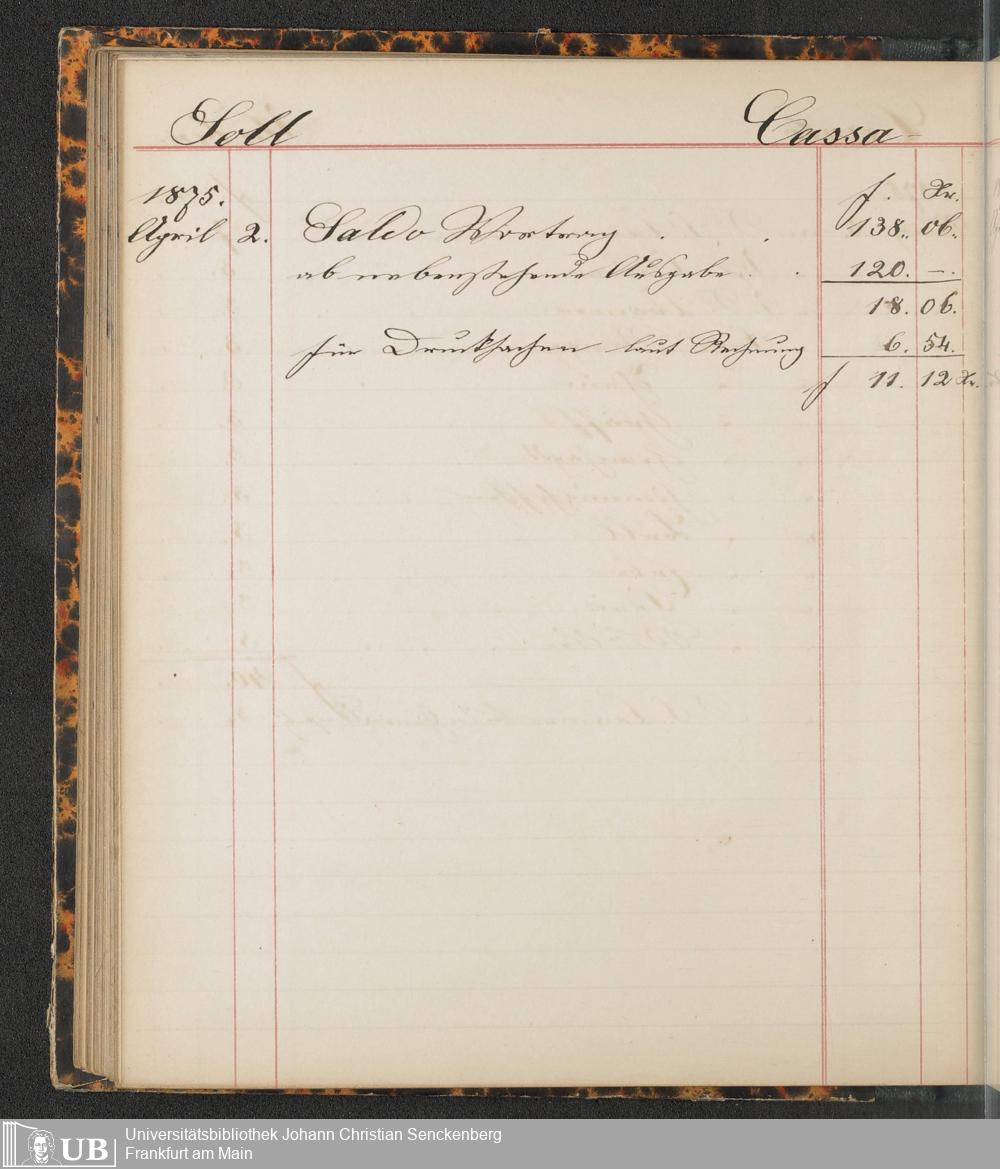 Soll Cassa
1875. f. Xr.
April 2. Saldo Vortrag . . 138. 06.
ab nebenstehende Ausgabe . . 120. —.
18. 06.
für Drucksachen laut Rechnung 6. 54.
f 11. 12 Xr.
UB Universitätsbibliothek Johann Christian Senckenberg
Frankfurt am Main